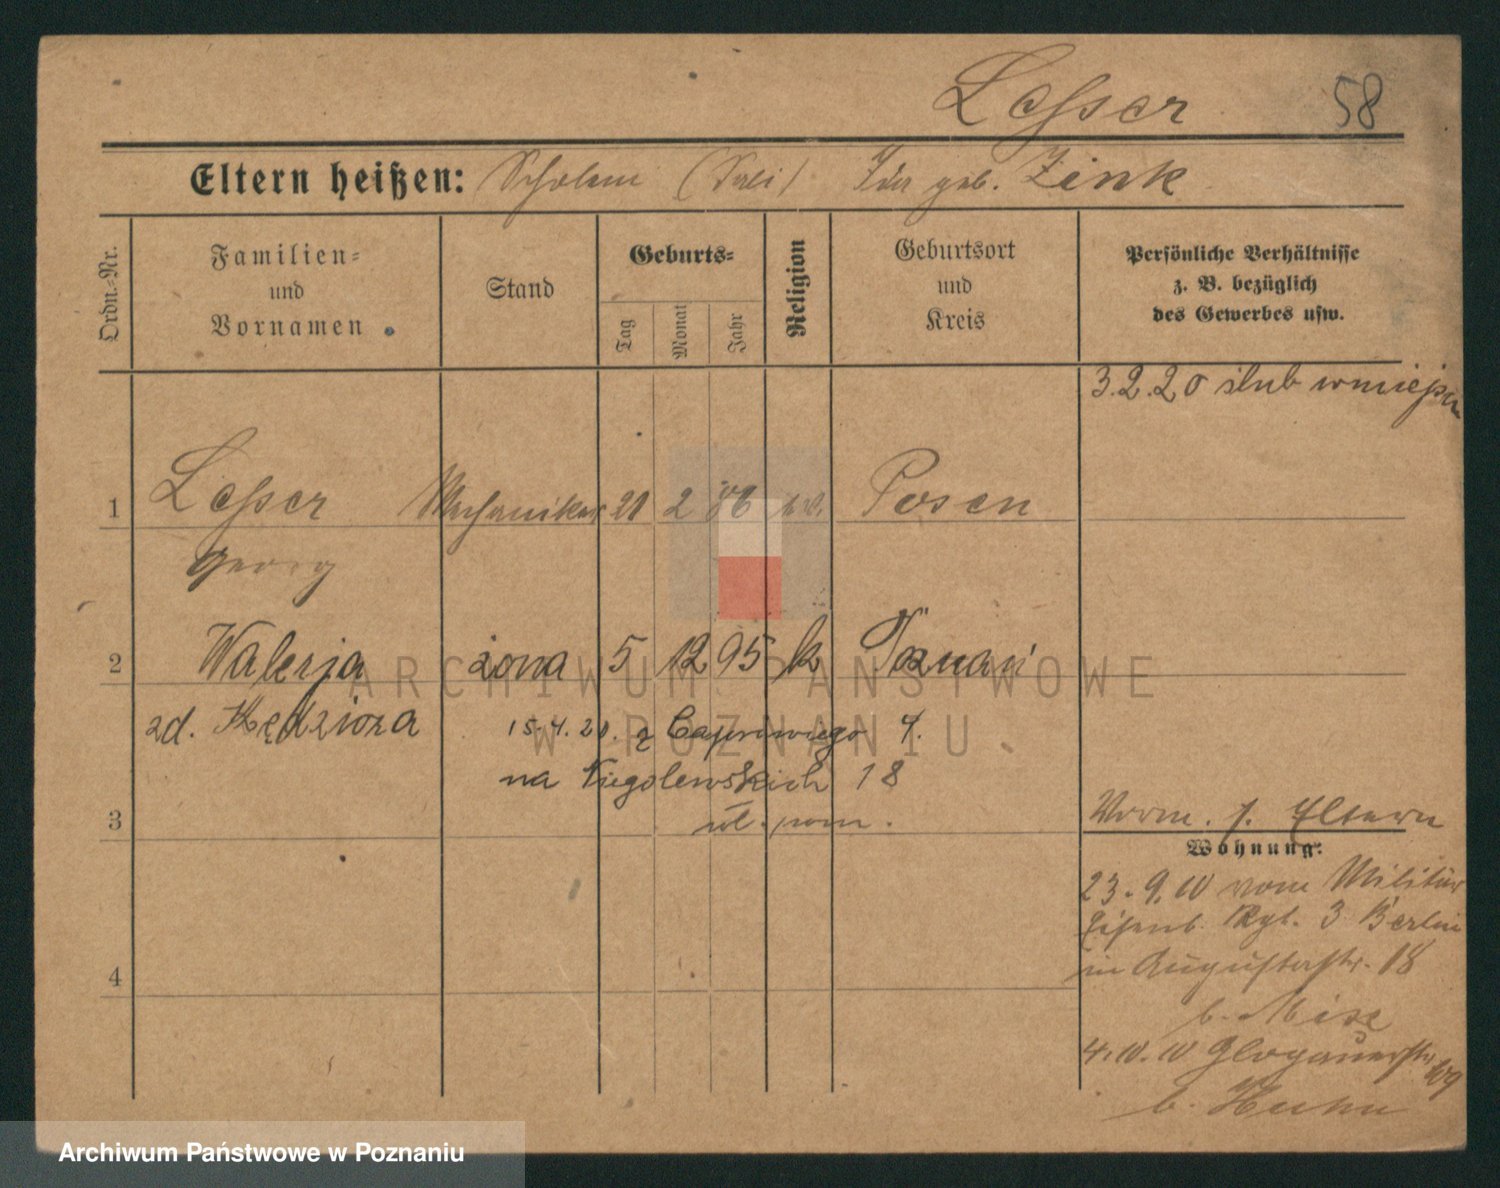 Lesser 58
Eltern heißen: Scholem (Sali) Ida geb. Zink
Ordn.-Nr.
Familien-
und
Vornamen
Stand
Geburts-
Tag
Monat
Jahr
Religion
Geburtsort
und
Kreis
Persönliche Verhältnisse
z. B. bezüglich
des Gewerbes usw.
3.2.20 ślub w miejscu
1 Lesser Mechaniker 21 2 Posen
Georg
2 Walerja żona 5 12 95 k Poznań
zd. Kędziora
15.4.20. z Capriwiego 4.
na Niegolewskich 18
3
Vorm. s. Eltern
Wohnung:
23.9.10 vom Militär
Eisenb. Rgt. 3 Berlin
in Augustastr. 18
4
b.
4.10.10 Glogauerstr. 109
b. Huhn
ARCHIWUM PAŃSTWOWE
W POZNANIU
Archiwum Państwowe w Poznaniu